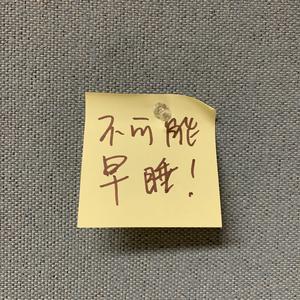 不可能
早睡！